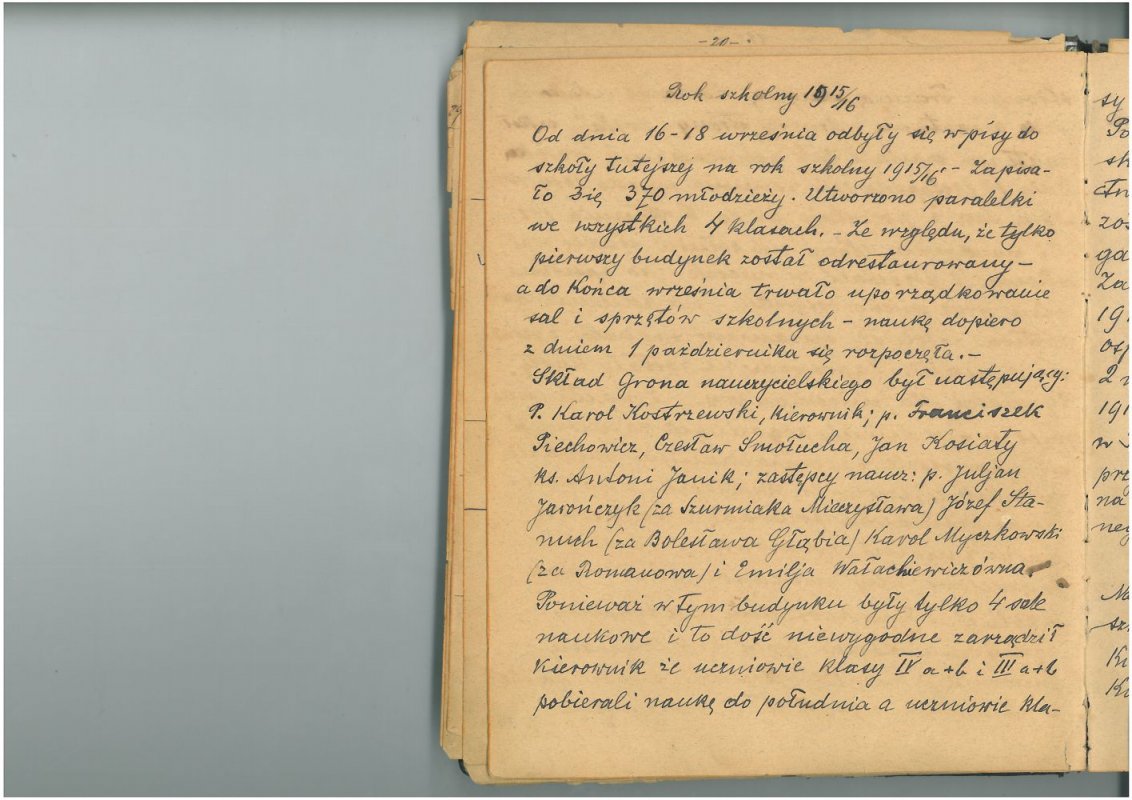 -20-
Rok szkolny 1915/16
Od dnia 16-18 września odbyły się wpisy do
szkoły tutejszej na rok szkolny 1915/16 - Zapisa-
ło się 370 młodzieży. Utworzono paralelki
we wszystkich 4 klasach. - Ze względu, że tylko
pierwszy budynek został odrestaurowany -
a do końca września trwało uporządkowanie
sal i sprzętów szkolnych - naukę dopiero
z dniem 1 października się rozpoczęła. -
Skład Grona nauczycielskiego był następujący:
P. Karol Kostrzewski, kierownik; p. Franciszek
Piechowicz, Czesław Smołucha, Jan Kosiaty
ks. Antoni Janik; zastępcy naucz: p. Juljan
Jarończyk (za Szurmiaka Mieczysława) Józef Sta-
nuch (za Bolesława Głąbia) Karol Myczkowski
(za Romanowa) i Emilja Wałachiewiczówna.
Ponieważ w tym budynku były tylko 4 sale
naukowe i to dość niewygodne zarządził
kierownik że uczniowie klasy IV a+b i III a+b
pobierali naukę do południa a uczniowie kla-